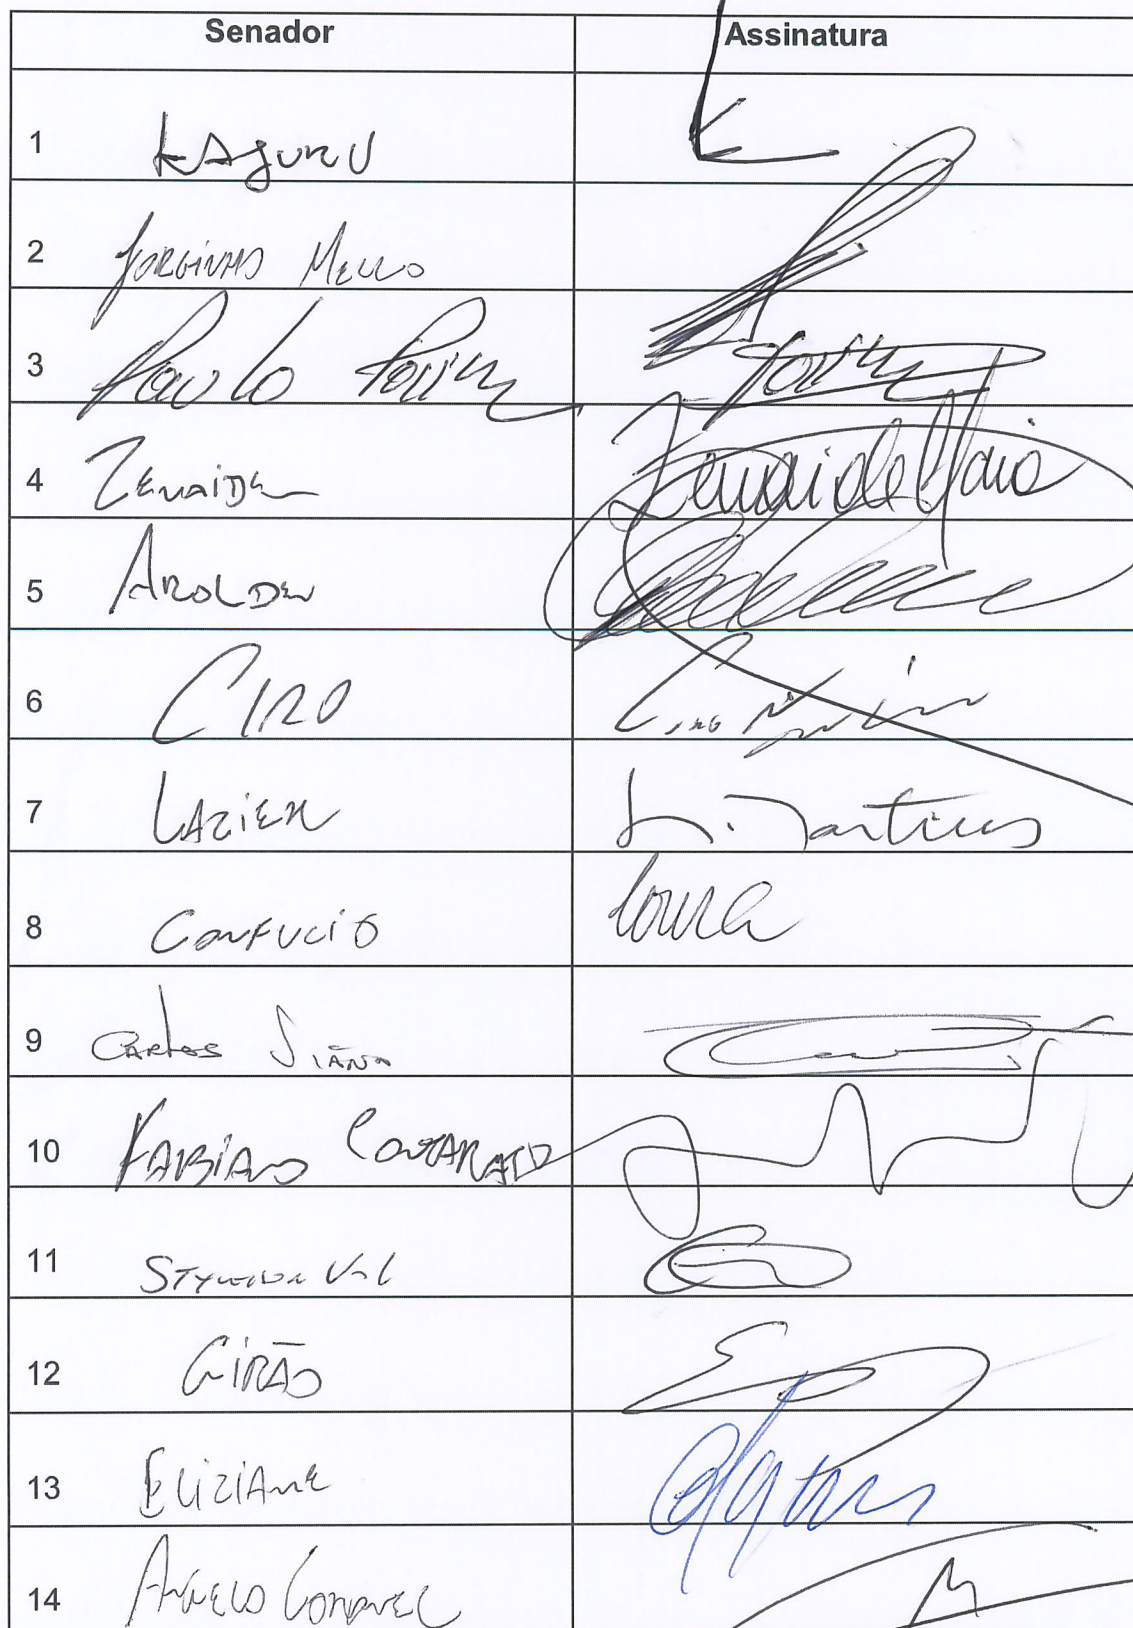 Senador Assinatura
1 KAJURU
2 JORGINHO MELLO
3 Paulo Paim Paim
4 ZENAIDE Zenaide Maia
5 AROLDE
6 CIRO Ciro Nogueira
7 LASIER L. Martins
8 CONFUCIO
9 CARLOS VIANA
10 FABIANO CONTARATO
11 STYVENSON VAL
12 GIRÃO
13 ELIZIANE
14 ANGELO CORONEL